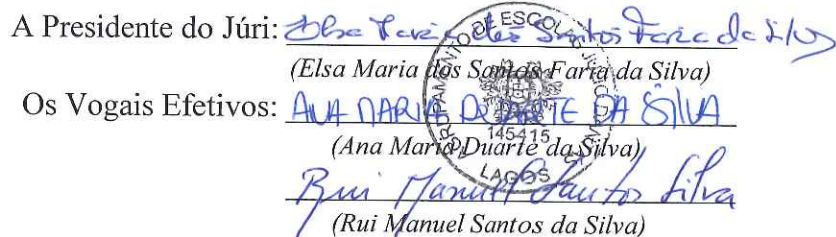 A Presidente do Júri: Elsa Maria dos Santos Faria da Silva
(Elsa Maria dos Santos Faria da Silva)
Os Vogais Efetivos: ANA MARIA DUARTE DA SILVA
(Ana Maria Duarte da Silva)
Rui Manuel Santos Silva
(Rui Manuel Santos da Silva)
AGRUPAMENTO DE ESCOLAS JÚLIO DANTAS
145415
LAGOS